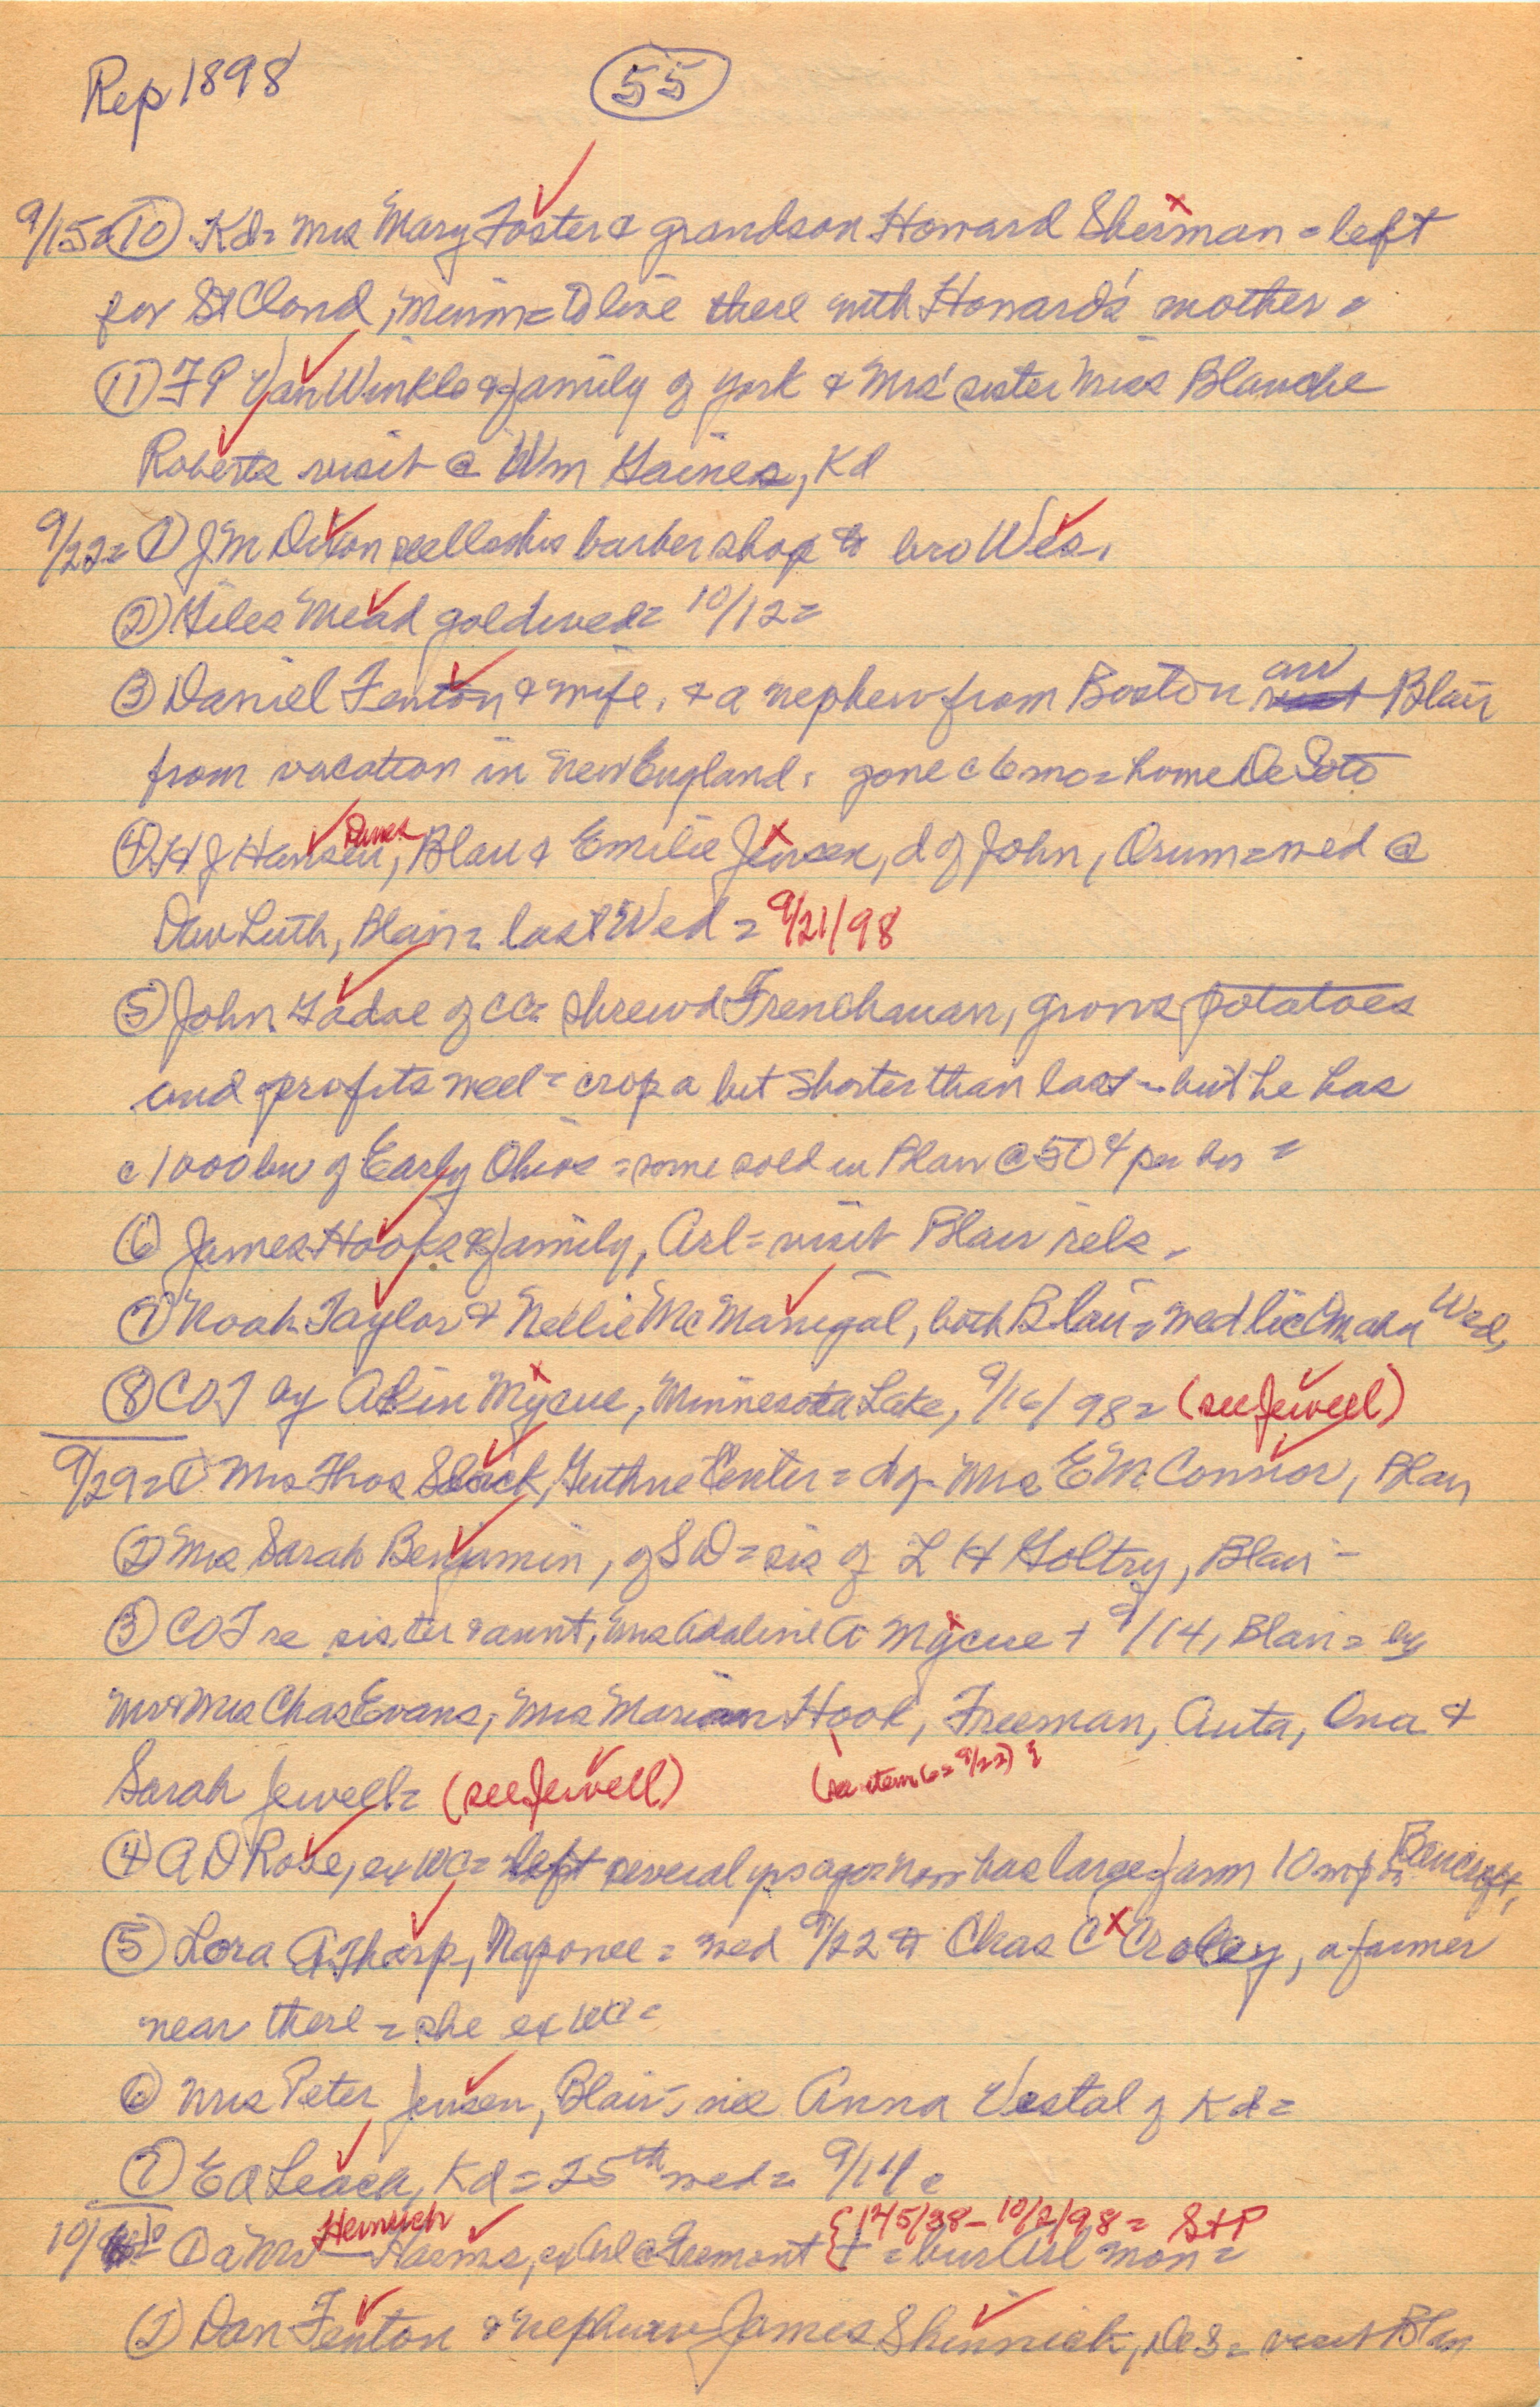 Rep 1898 55
9/15= 10 Kd= Mrs Mary Foster & grandson Howard Sherman = left
for St Cloud, Minn = to live there with Howard's mother =
11 F P Van Winkle & family of York & Mrs' sister Miss Blanche
Roberts visit @ Wm Gaines, Kd
9/22= 1 J M Dixon sells his barber shop to bro Wes.
2 Giles Mead gold wed = 10/12 =
3 Daniel Fenton & wife, & a nephew from Boston arr Blair
from vacation in New England, gone c 6 mo = home De Soto
4 H J Hansen, Danes Blair & Emilie Jensen, d of John, Orum = wed @
Dan Luth, Blair = last Wed = 9/21/98
5 John Gadoe of CC = shrewd Frenchman, grows potatoes
and profits well = crop a bit shorter than last – but he has
c 1000 bu of Early Ohios = some sold in Blair @ 50¢ per bu =
6 James Hooks & family, Arl = visit Blair rels.
7 Noah Taylor & Nellie McManigal, both Blair = wed lic Omaha Wed,
8 COT by Alvin Mycue, Minnesota Lake, 9/16/98 = (see Jewell)
9/29= 1 Mrs Thos Slack, Guthrie Center = d of Mrs E M Connor, Blair
2 Mrs Sarah Benjamin, of SD = sis of L H Goltry, Blair –
3 COT re sister & aunt, Mrs Adaline A Mycue + 9/14, Blair = by
Mr & Mrs Chas Evans, Mrs Marian Hook, Freeman, Auta, Ona &
Sarah Jewell = (see Jewell) (see item 6 = 9/22)
4 A D Rose, ex WC = left several yrs ago = now has large farm 10 mi fm Bancroft,
5 Lora A Tharp, Naponee = wed 9/22 to Chas C Croley, a farmer
near there = she ex WC =
6 Mrs Peter Jensen, Blair, nee Anna Vestal of Kd =
7 Ed Leach, Kd = 25th wed = 9/14 =
10/ = 1 a Mr Heinrich Harms, ex Arl @ Fremont {12/5/38 – 10/2/98 = St P
+ = bur Arl Mon =
2 Dan Fenton & nephew James Shinnick, De S = visit Blair